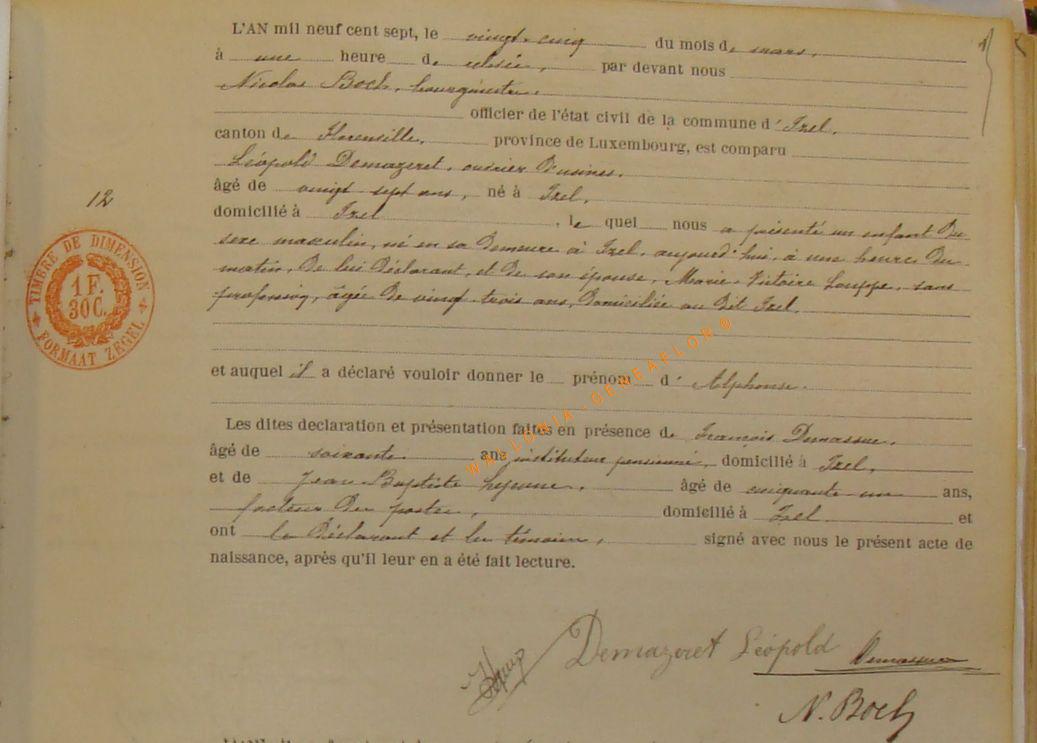 L'AN mil neuf cent sept, le vingt-cinq du mois de mars,
à une heure de relevée, par devant nous
Nicolas Boch, bourgmestre,
officier de l'état civil de la commune d'Izel,
canton de Florenville, province de Luxembourg, est comparu
Léopold Demazeret, ouvrier d'usines,
âgé de vingt sept ans, né à Izel,
domicilié à Izel, le quel nous a présenté un enfant du
sexe masculin, né en sa demeure à Izel, aujourd'hui, à une heure du
matin, de lui déclarant, et de son épouse, Marie-Victoire Louppe, sans
profession, âgée de vingt trois ans, domiciliée au dit Izel,
et auquel il a déclaré vouloir donner le prénom d'Alphonse.
Les dites declaration et présentation faites en présence de François Demasure,
âgé de soixante ans instituteur pensionné, domicilié à Izel,
et de Jean Baptiste Lejeune, âgé de cinquante-un ans,
facteur des postes, domicilié à Izel et
ont le déclarant et les témoins, signé avec nous le présent acte de
naissance, après qu'il leur en a été fait lecture.
12
TIMBRE DE DIMENSION
1 F.
30 C.
FORMAAT ZEGEL
WALLONIA-GENEAFLOR©
Demazeret Léopold
N. Boch